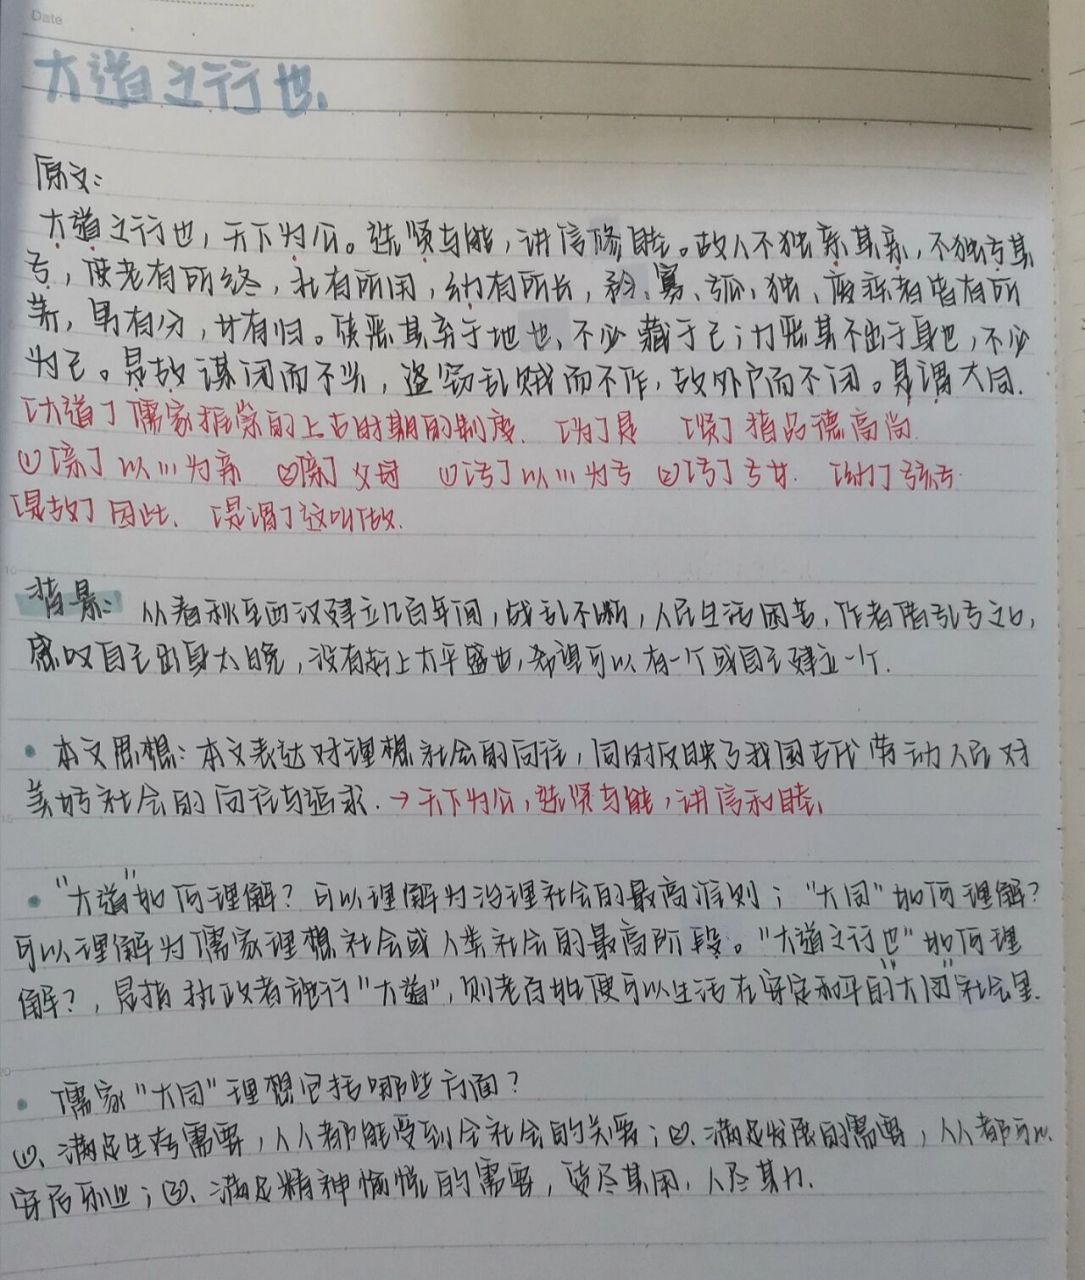 Date
大道之行也.
原文:
大道之行也,天下为公。选贤与能,讲信修睦。故人不独亲其亲,不独子其
子,使老有所终,壮有所用,幼有所长,矜、寡、孤、独、废疾者皆有所
养,男有分,女有归。货恶其弃于地也、不必藏于己;力恶其不出于身也,不必
为己。是故谋闭而不兴,盗窃乱贼而不作,故外户而不闭。是谓大同.
[大道]儒家推崇的上古时期的制度. [为]是 [贤]指品德高尚.
①[亲]以…为亲 ②[亲]父母 ①[子]以…为子 ②[子]子女. [幼]孩子.
[是故]因此. [是谓]这叫做.
背景: 从春秋至西汉建立几百年间,战乱不断,人民生活困苦,作者借孔子之口,
感叹自己出身太晚,没有赶上太平盛世,希望可以有一个或自己建立一个.
• 本文思想:本文表达对理想社会的向往,同时反映了我国古代劳动人民对
美好社会的向往与追求.→天下为公,选贤与能,讲信和睦.
• "大道"如何理解?可以理解为治理社会的最高准则;"大同"如何理解?
可以理解为儒家理想社会或人类社会的最高阶段。"大道之行也"如何理
解?,是指执政者施行"大道",则老百姓便可以生活在安定和平的"大同"社会里.
• 儒家"大同"理想包括哪些方面?
①、满足生存需要,人人都能受到全社会的关爱;②、满足发展的需要,人人都可以
安居乐业;③、满足精神愉悦的需要,货尽其用,人尽其力.